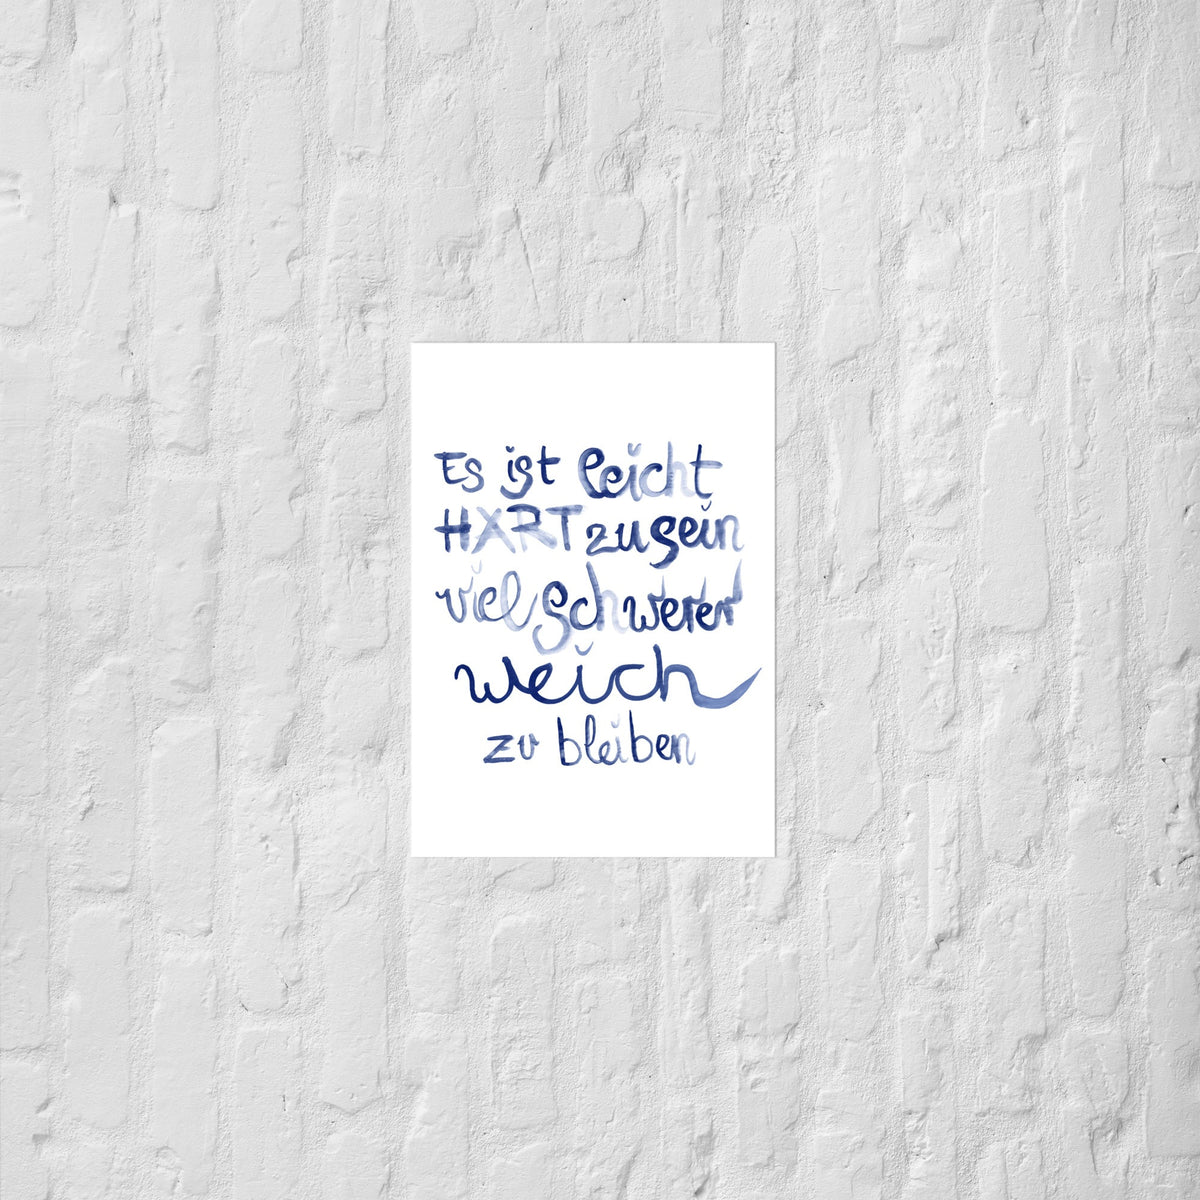 Es ist leicht
HART zu sein
viel schwerer
weich
zu bleiben